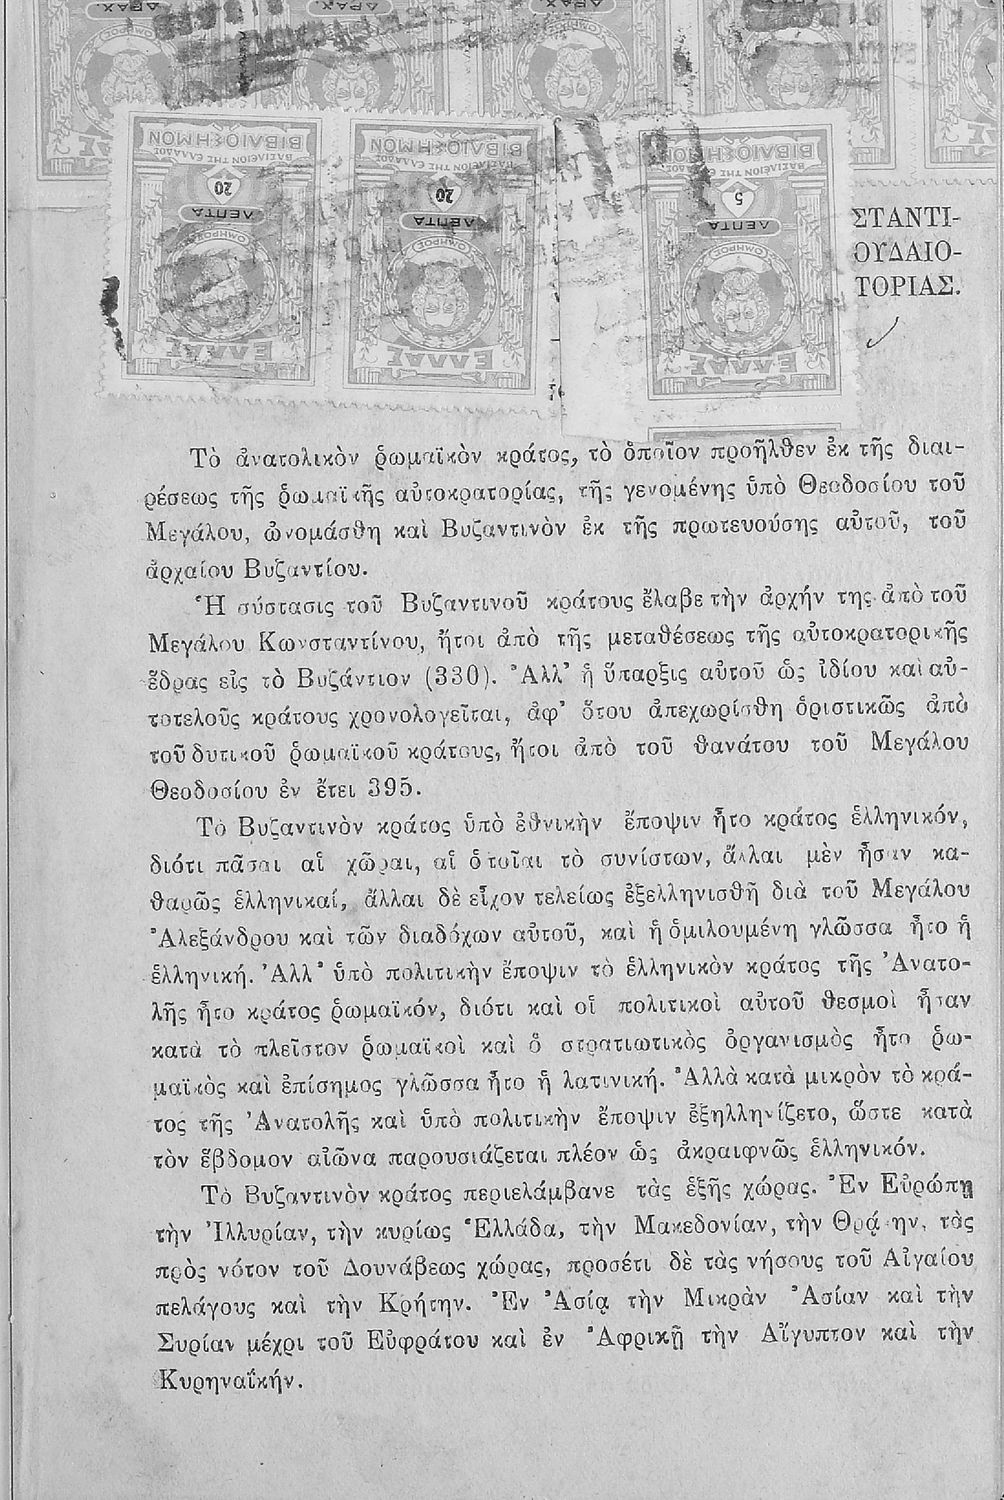 ΒΙΒΛΙΟΣΗΜΟΝ ΒΙΒΛΙΟΣΗΜΟΝ ΒΙΒΛΙΟΣΗΜΟΝ
ΒΑΣΙΛΕΙΟΝ ΤΗΣ ΕΛΛΑΔΟΣ
20 20 5
ΛΕΠΤΑ ΛΕΠΤΑ ΛΕΠΤΑ
ΟΜΗΡΟΣ ΟΜΗΡΟΣ ΟΜΗΡΟΣ
ΕΛΛΑΣ ΕΛΛΑΣ ΕΛΛΑΣ
ΣΤΑΝΤΙ-
ΟΥΔΑΙΟ-
ΤΟΡΙΑΣ.
Τὸ ἀνατολικὸν ῥωμαϊκὸν κράτος, τὸ ὁποῖον προῆλθεν ἐκ τῆς διαι-
ρέσεως τῆς ῥωμαϊκῆς αὐτοκρατορίας, τῆς γενομένης ὑπὸ Θεοδοσίου τοῦ
Μεγάλου, ὠνομάσθη καὶ Βυζαντινὸν ἐκ τῆς πρωτευούσης αὐτοῦ, τοῦ
ἀρχαίου Βυζαντίου.
Ἡ σύστασις τοῦ Βυζαντινοῦ κράτους ἔλαβε τὴν ἀρχήν της ἀπὸ τοῦ
Μεγάλου Κωνσταντίνου, ἤτοι ἀπὸ τῆς μεταθέσεως τῆς αὐτοκρατορικῆς
ἕδρας εἰς τὸ Βυζάντιον (330). Ἀλλ' ἡ ὕπαρξις αὐτοῦ ὡς ἰδίου καὶ αὐ-
τοτελοῦς κράτους χρονολογεῖται, ἀφ' ὅτου ἀπεχωρίσθη ὁριστικῶς ἀπὸ
τοῦ δυτικοῦ ῥωμαϊκοῦ κράτους, ἤτοι ἀπὸ τοῦ θανάτου τοῦ Μεγάλου
Θεοδοσίου ἐν ἔτει 395.
Τὸ Βυζαντινὸν κράτος ὑπὸ ἐθνικὴν ἔποψιν ἦτο κράτος ἑλληνικόν,
διότι πᾶσαι αἱ χῶραι, αἱ ὁποῖαι τὸ συνίστων, ἄλλαι μὲν ἦσαν κα-
θαρῶς ἑλληνικαί, ἄλλαι δὲ εἶχον τελείως ἐξελληνισθῆ διὰ τοῦ Μεγάλου
Ἀλεξάνδρου καὶ τῶν διαδόχων αὐτοῦ, καὶ ἡ ὁμιλουμένη γλῶσσα ἦτο ἡ
ἑλληνική. Ἀλλ' ὑπὸ πολιτικὴν ἔποψιν τὸ ἑλληνικὸν κράτος τῆς Ἀνατο-
λῆς ἦτο κράτος ῥωμαϊκόν, διότι καὶ οἱ πολιτικοὶ αὐτοῦ θεσμοὶ ἦσαν
κατὰ τὸ πλεῖστον ῥωμαϊκοὶ καὶ ὁ στρατιωτικὸς ὀργανισμὸς ἦτο ῥω-
μαϊκὸς καὶ ἐπίσημος γλῶσσα ἦτο ἡ λατινική. Ἀλλὰ κατὰ μικρὸν τὸ κρά-
τος τῆς Ἀνατολῆς καὶ ὑπὸ πολιτικὴν ἔποψιν ἐξηλληνίζετο, ὥστε κατὰ
τὸν ἕβδομον αἰῶνα παρουσιάζεται πλέον ὡς ἀκραιφνῶς ἑλληνικόν.
Τὸ Βυζαντινὸν κράτος περιελάμβανε τὰς ἑξῆς χώρας. Ἐν Εὐρώπῃ
τὴν Ἰλλυρίαν, τὴν κυρίως Ἑλλάδα, τὴν Μακεδονίαν, τὴν Θρᾴκην, τὰς
πρὸς νότον τοῦ Δουνάβεως χώρας, προσέτι δὲ τὰς νήσους τοῦ Αἰγαίου
πελάγους καὶ τὴν Κρήτην. Ἐν Ἀσίᾳ τὴν Μικρὰν Ἀσίαν καὶ τὴν
Συρίαν μέχρι τοῦ Εὐφράτου καὶ ἐν Ἀφρικῇ τὴν Αἴγυπτον καὶ τὴν
Κυρηναϊκήν.